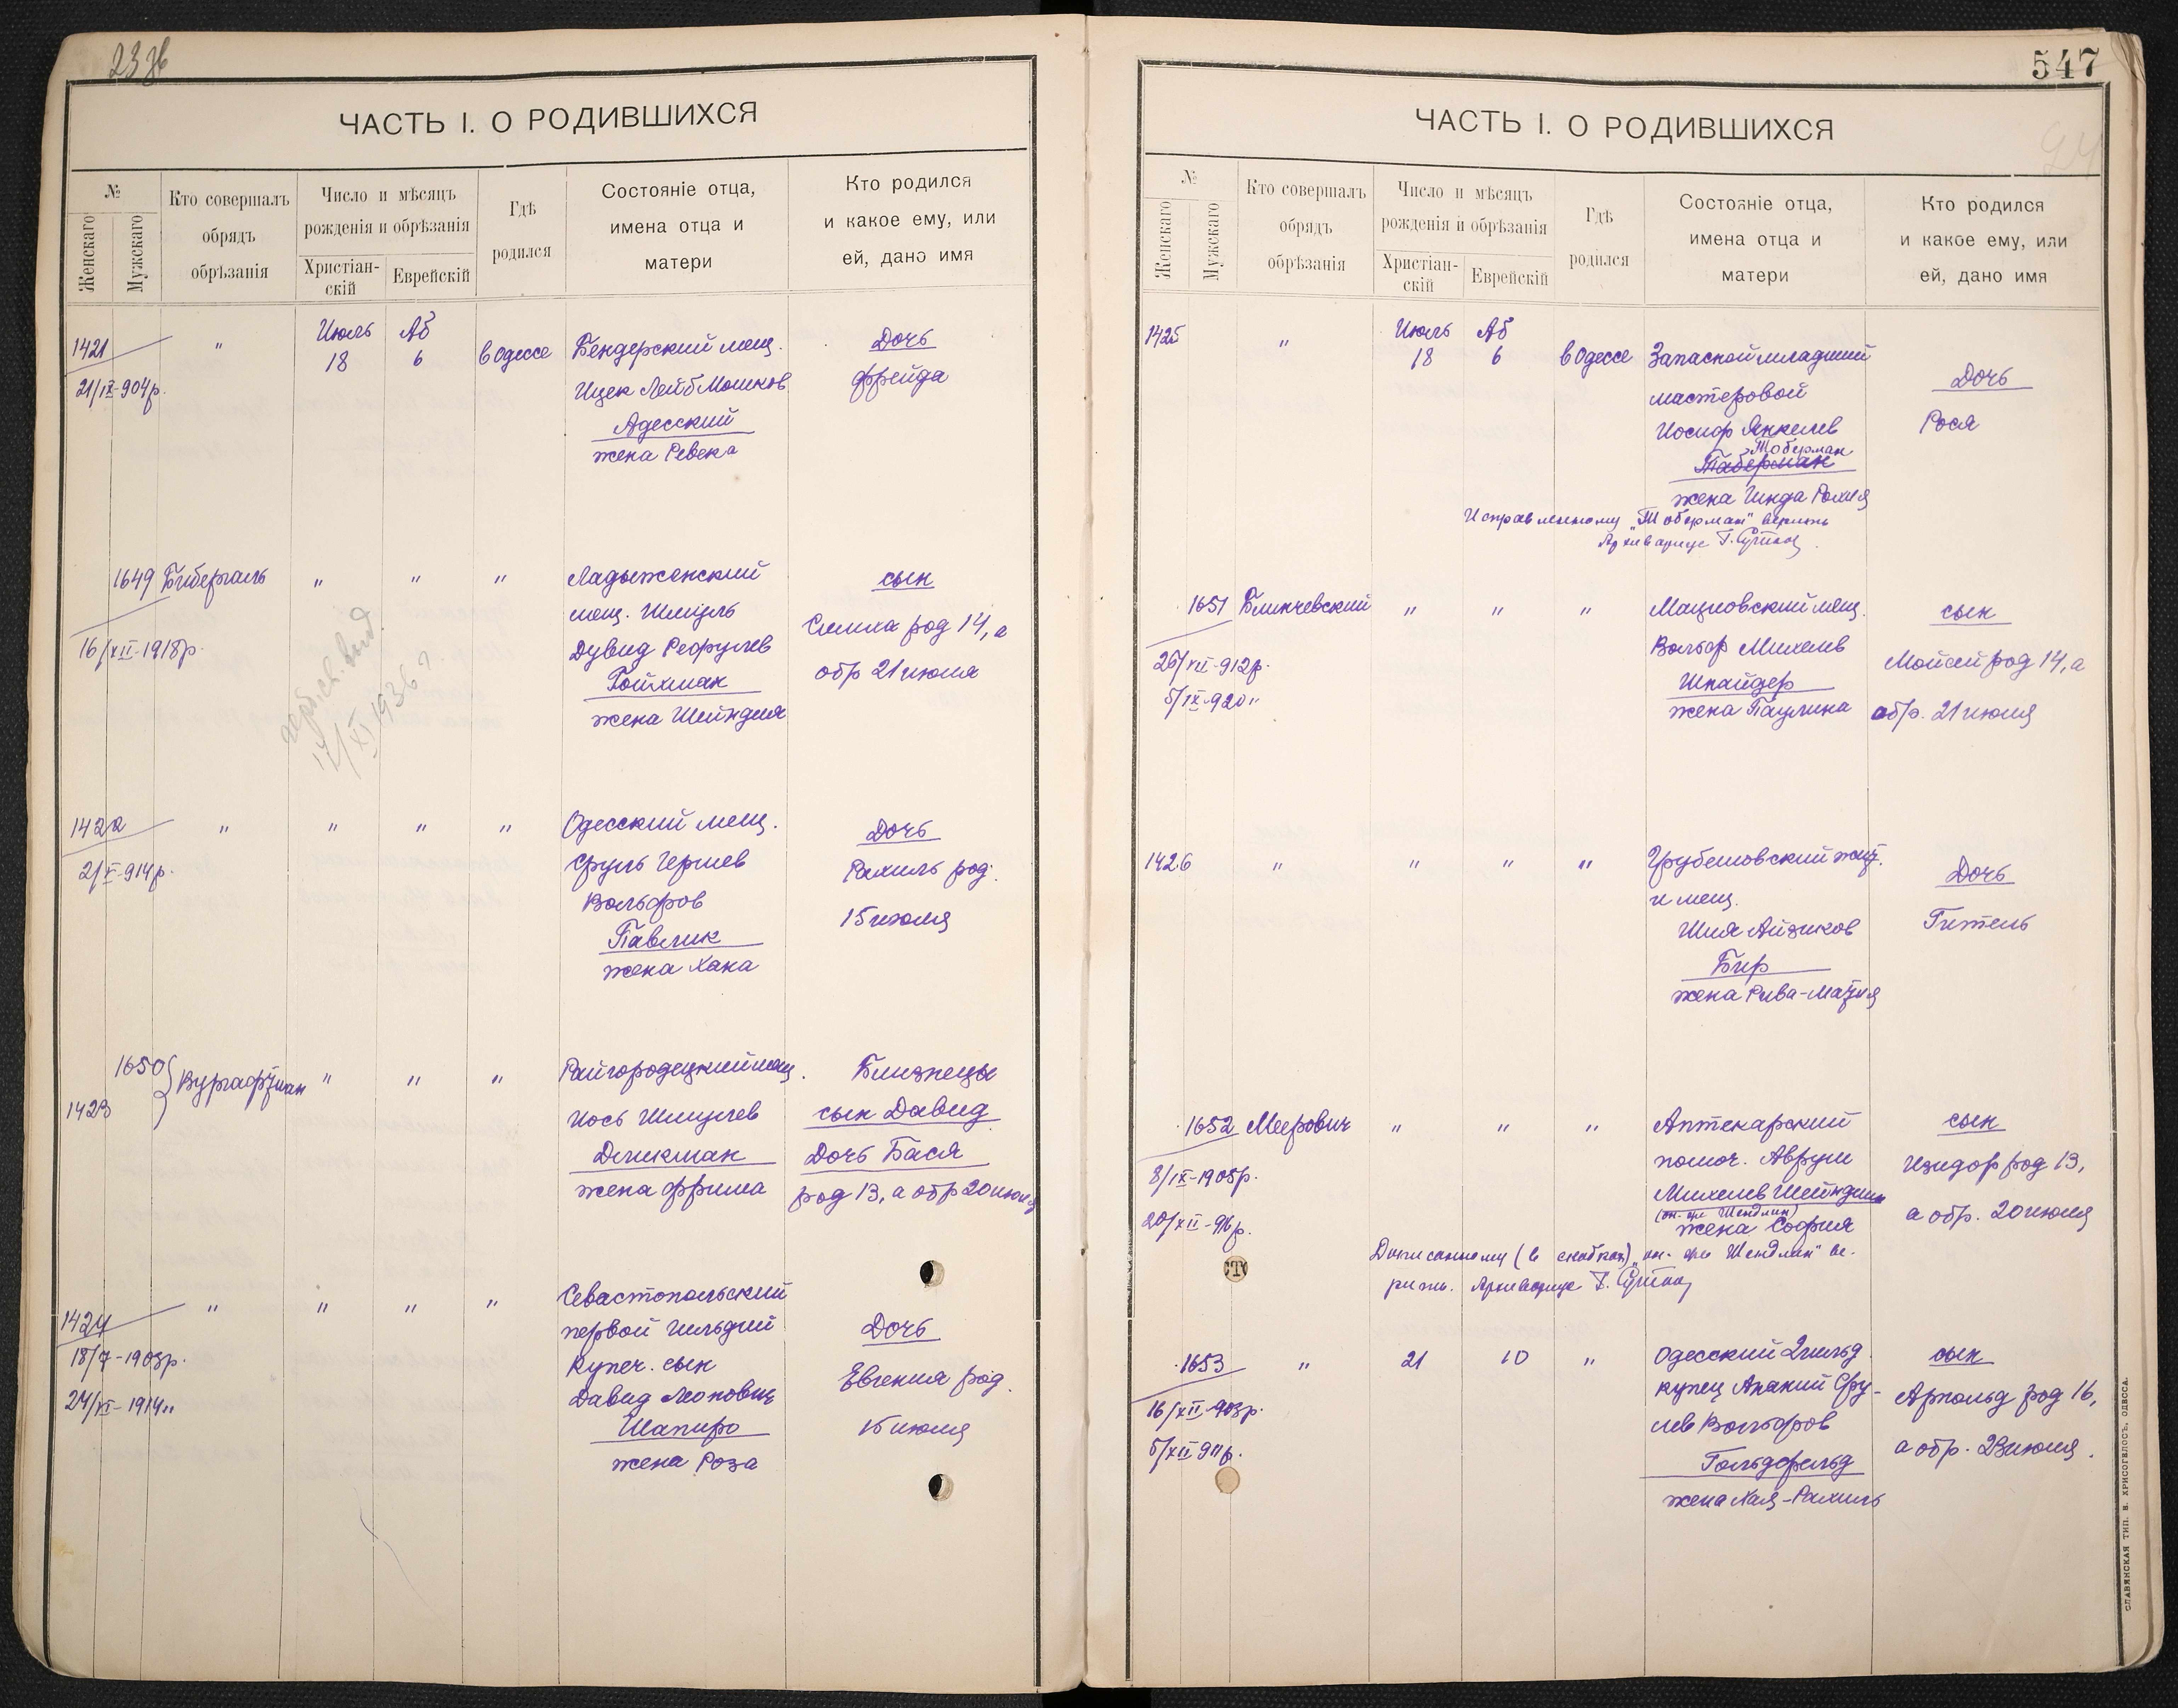 ЧАСТЬ I. О РОДИВШИХСЯ
№
Женскаго
Мужскаго
Кто совершалъ
обрядъ
обрѣзанія
Число и мѣсяцъ
рожденія и обрѣзанія
Христіан-
скій
Еврейскій
Гдѣ
родился
Состояніе отца,
имена отца и
матери
Кто родился
и какое ему, или
ей, дано имя
1421
21/IX-904р.
"
Июль
18
Аб
6
в Одессе
Бендерский мещ.
Ицек Лейб Мошков
Адесский
жена Ревека
Дочь
Фрейда
1649
16/XII-1918р.
Бибергаль
"
"
"
Ладыженский
мещ. Шмуль
Дувид Рефулев
Гойхман
жена Шейндля
сын
Симха род 14, а
обр 21 июля
1936 г
1422
21/X-914р.
"
"
"
"
Одесский мещ.
Сруль Гершев
Вольфов
Павлик
жена Хана
Дочь
Рахиль род.
15 июля
1650
1423
Вургафтман
"
"
"
Райгородецкий мещ.
Иось Шмулев
Дликман
жена Фрима
Близнецы
сын Давид
Дочь Бася
род 13, а обр 20 июля
1424
18/7-1903р.
24/XI-1914 "
"
"
"
"
Севастопольский
первой гильдии
купеч. сын
Давид Леонович
Шапиро
жена Роза
Дочь
Евгения род.
15 июля
547
24
ЧАСТЬ I. О РОДИВШИХСЯ
№
Женскаго
Мужскаго
Кто совершалъ
обрядъ
обрѣзанія
Число и мѣсяцъ
рожденія и обрѣзанія
Христіан-
скій
Еврейскій
Гдѣ
родился
Состояніе отца,
имена отца и
матери
Кто родился
и какое ему, или
ей, дано имя
1425
"
Июль
18
Аб
6
в Одессе
Запасной младший
мастеровой
Иосиф Янкелев
Тоберман
Таберман
жена Гинда Рахиля
Дочь
Рося
Исправленному "Тоберман" верить
Архивариус Г.
1651
26/VII-912р.
5/IX-920 "
Блинчевский
"
"
"
Мациовский мещ.
Вольф Михелев
Шнайдер
жена Паулина
сын
Мойсей род 14, а
обр. 21 июля
1426
"
"
"
"
Грубешовский жит.
и мещ.
Шия Айзиков
Бир
жена Рива-Матля
Дочь
Гитель
1652
8/IX-1905р.
20/XII-916р.
Меерович
"
"
"
Аптекарский
помоч. Аврум
Михелев Шейндлин
(он же Шендлин)
жена София
сын
Изидор род 13,
а обр. 20 июля
Дописанному (в скобках) "он же Шендлин" ве-
рить. Архивариус Г.
1653
16/XII-903р.
5/XII 911р.
"
21
10
"
Одесский 2 гильд
купец Ананий Сру-
лев Вольфов
Гольдфельд
жена Хая-Рахиль
сын
Арнольд род 16,
а обр. 23 июля.
СЛАВЯНСКАЯ ТИП. Н. ХРИСОГЕЛОСЪ, ОДЕССА.